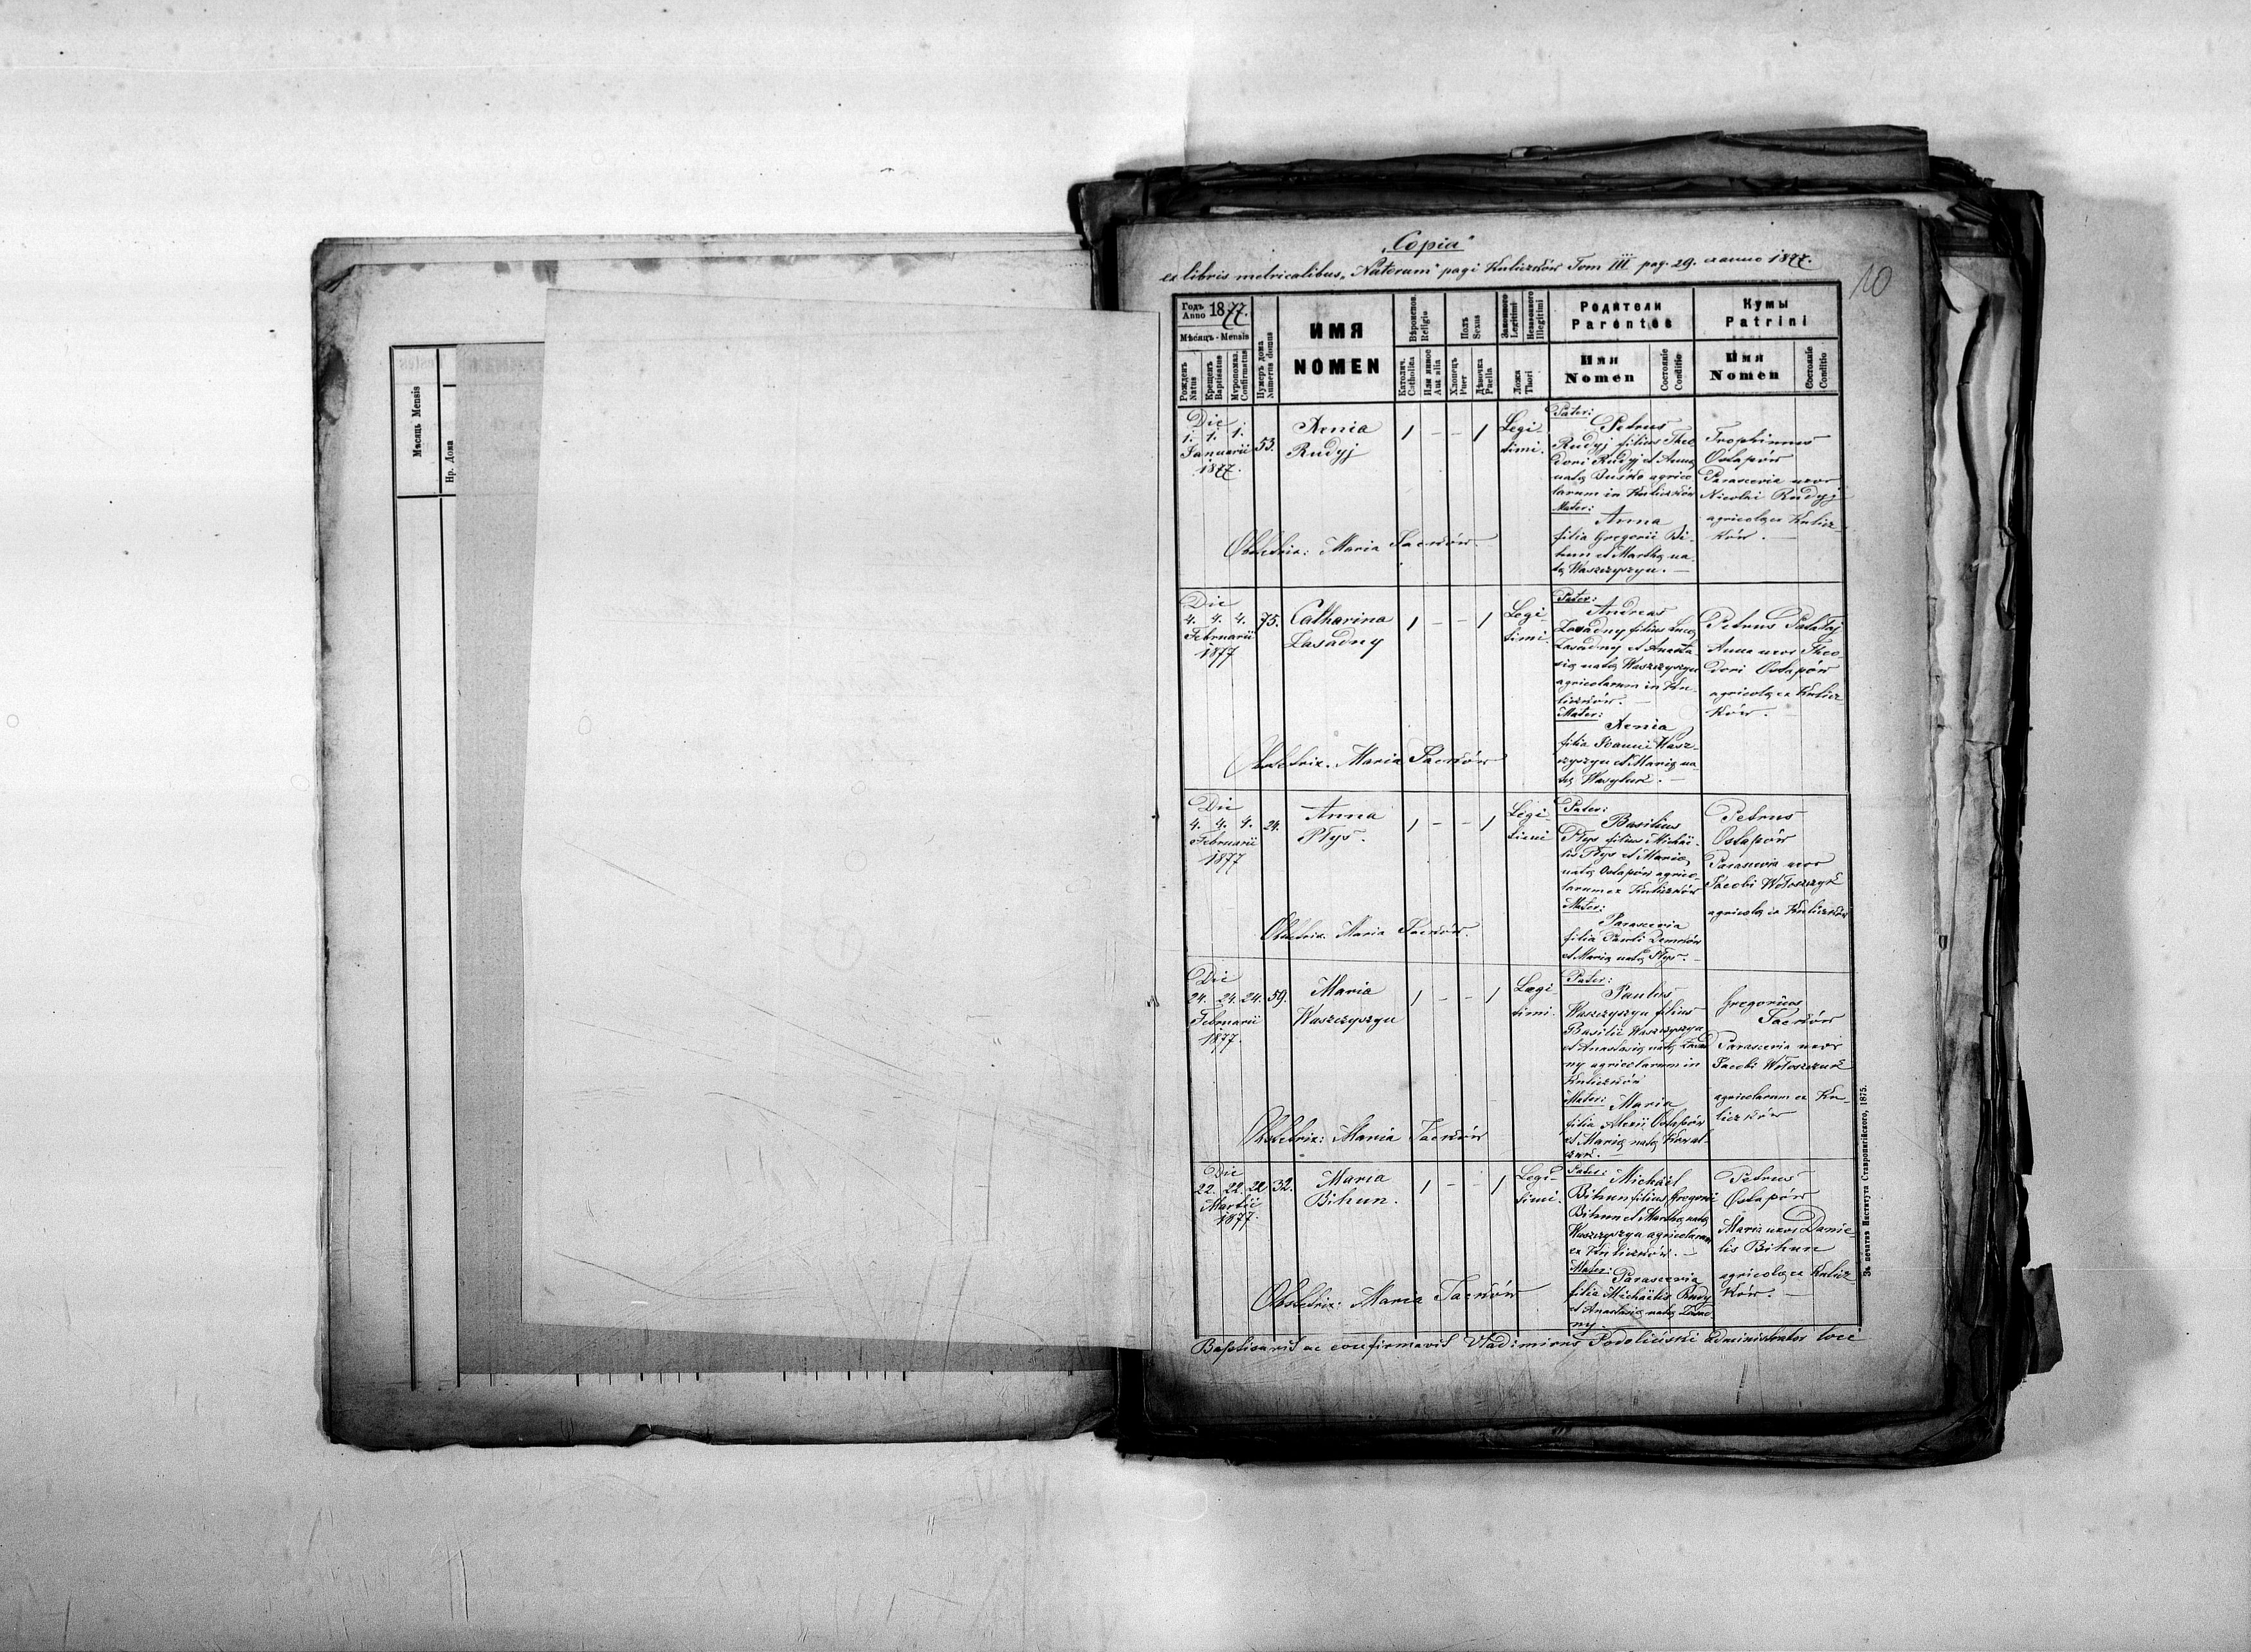 „Copia"
ex libris metricalibus „Natorum" pagi Kuliczków Tom III pag. 29. ex anno 1877.
10
Годъ Anno 1877.
Мѣсяцъ - Mensis
Рожденъ Natus
Крещенъ Baptisatus
Мѵропомаз. Confirmatus
Нумеръ дома Numerus domus
ИМЯ
NOMEN
Вѣроисповѣд. Religio
Католич. Catholica
Или инное Aut alia
Полъ Sexus
Хлопець Puer
Дѣвочка Puella
Законного Legitimi
Незаконного Illegitimi
Ложа Thori
Родители
Parentes
Имя
Nomen
Состояніе Conditio
Кумы
Patrini
Имя
Nomen
Состояніе Conditio
Die
1. 1. 1.
Januarii
1877.
53.
Xenia
Rudyj
1 - - 1
Legi-
timi.
Pater:
Petrus
Rudyj filius Theo
dori Rudyj et Anna
nata Buśko agrico
larum in Kuliczków
Mater:
Anna
filia Gregorii Bi-
hun et Martha na-
ta Waszczyszyn. —
Trophimus
Ostapów
Parascevia uxor
Nicolai Rudyj
agricola ex Kulicz-
ków. —
Obstetrix: Maria Jacków.
Die
4. 4. 4.
Februarii
1877
75.
Catharina
Zasadny
1 - - 1
Legi-
timi.
Pater:
Andreas
Zasadny filius Luca
Zasadny et Anasta-
sia nata Waszczyszyn
agricolarum in Ku-
liczków. —
Mater:
Xenia
filia Joanni Wasz-
czyszyn et Maria na-
ta Wasyluk. —
Petrus Pałataj
Anna uxor Theo
dori Ostapów
agricola ex Kulicz
ków. —
Obstetrix. Maria Jacków
Die
4. 4. 4.
Februarii
1877
24.
Anna
Płys.
1 - - 1
Legi-
timi
Pater:
Basilius
Płys filius Michaë-
lis Płys et Maria
nata Ostapów agrico-
larum ex Kuliczków
Mater:
Parascevia
filia Pauli Demków
et Maria nata Płys. —
Petrus
Ostapów
Parascevia uxor
Jacobi Wołoszczuk
agricola ex Kuliczków
Obstetrix. Maria Jacków.
Die
24. 24. 24.
Februarii
1877.
59.
Maria
Waszczyszyn
1 - - 1
Legi-
timi.
Pater:
Paulus
Waszczyszyn filius
Basilii Waszczyszyn
et Anastasia nata Zasad
ny agricolarum in
Kuliczków
Mater: Maria
filia Alexii Ostapów
et Maria nata Kowal-
czuk. —
Gregorius
Jacków
Parascevia uxor
Jacobi Wołoszczuk
agricolarum ex Ku-
liczków
Obstetrix: Maria Jacków
Die
22. 22. 22
Martii
1877.
32.
Maria
Bihun.
1 - - 1
Legi-
timi.
Pater: Michaël
Bihun filius Gregorii
Bihun et Martha nata
Waszczyszyn agricolarum
ex Kuliczków. —
Mater:
Parascevia
filia Michaëlis Rudy
et Anastasia nata Zasad
ny. —
Petrus
Ostapów
Maria uxor Danie-
lis Bihun
agricola ex Kulicz-
ków. —
Obstetrix: Maria Jacków
Baptisavit ac confirmavit Vladimirus Podoliński administrator loci
Зъ печатнѣ Института Ставропигійского, 1875.
Мѣсяць Mensis
Нр. Дома